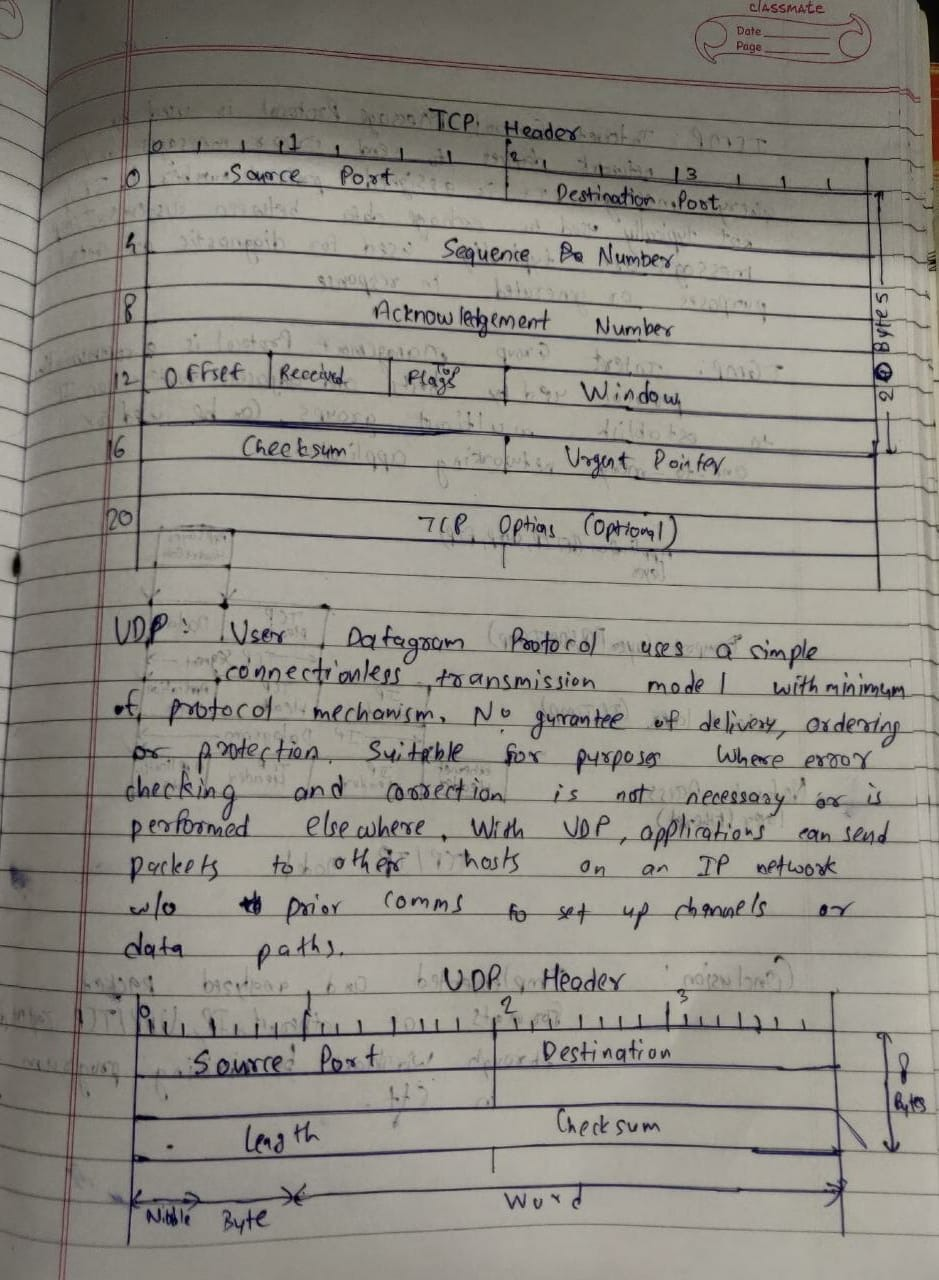 classmate
Date
Page
TCP Header
0 1 2 3
0 Source Port Destination Port
4 Sequence Number
8 Acknowledgement Number
12 Offset Received TCP Flags Window
16 Checksum Urgent Pointer
20 TCP Options (Optional)
20 Bytes
UDP : User Datagram Protocol uses a simple
connectionless transmission model with minimum
of protocol mechanism. No gurantee of delivery, ordering
or protection. Suitable for purposes where error
checking and correction is not necessary or is
performed elsewhere. With UDP, applications can send
packets to other hosts on an IP network
w/o prior comms to set up channels or
data paths.
UDP Header
0 1 2 3
Source Port Destination
Length Checksum
8 Bytes
Nibble Byte Word